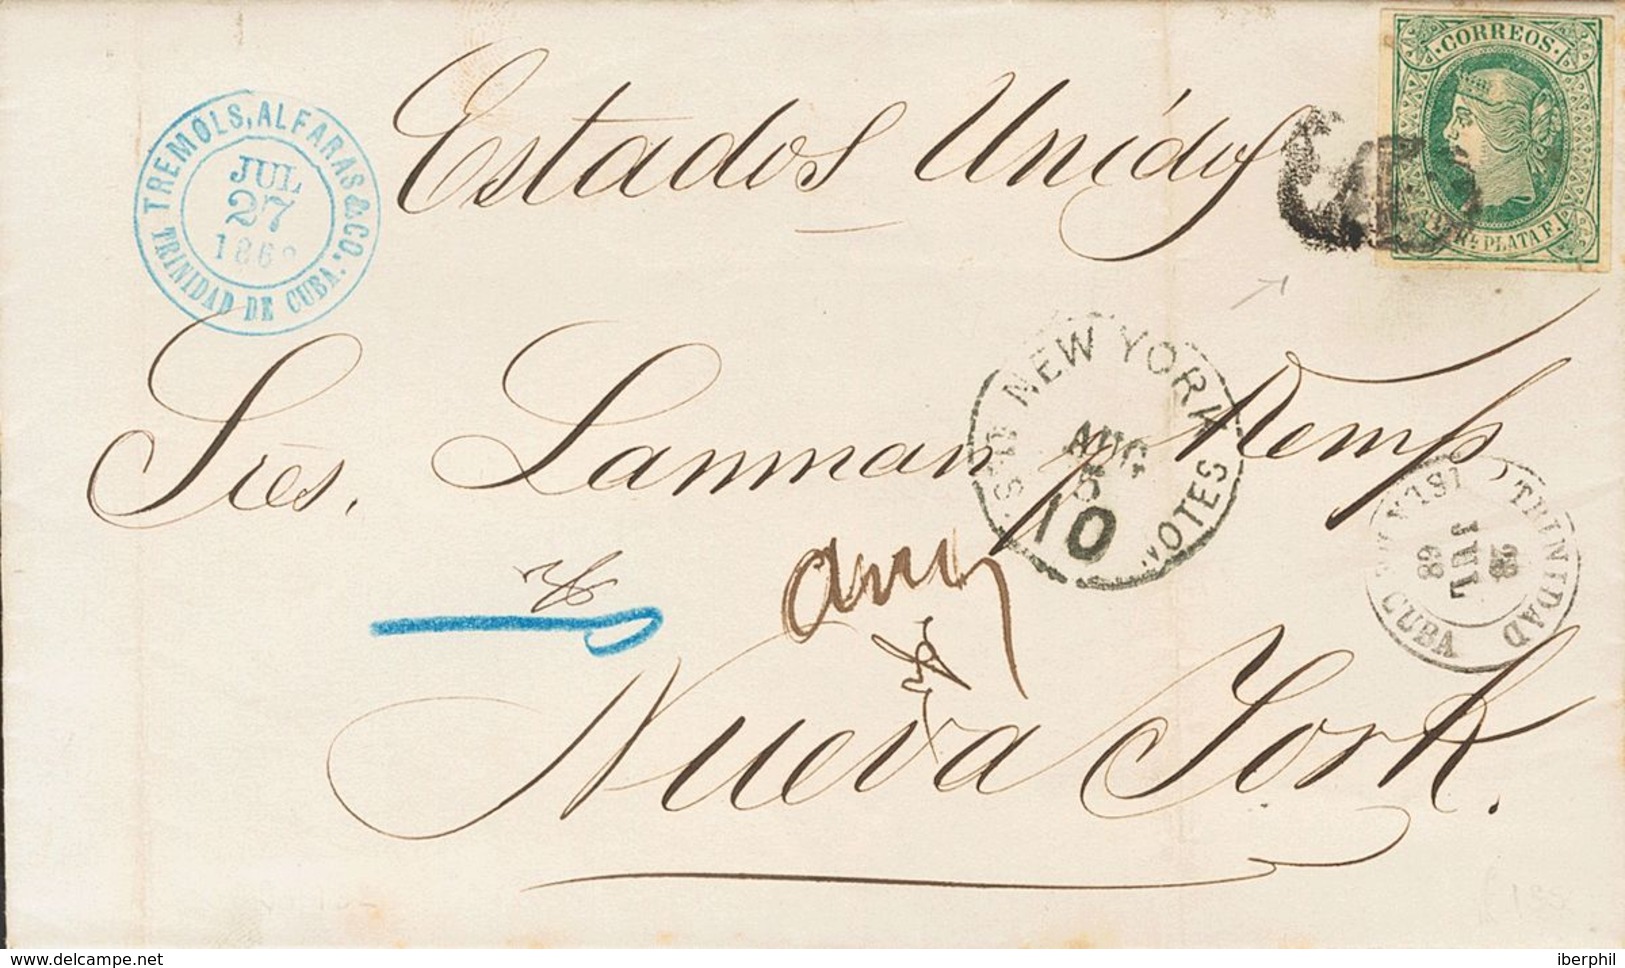 Estados Unidos
CORREOS.
Rl. PLATA F.
TREMOLS, ALFARAS & CO.
JUL
27
186
TRINIDAD DE CUBA.
Sres. Lanman y Kemp,
NEW YORK
AUG
5
10
NOTES
TRINIDAD
28
JUL
68
ISLA DE CUBA
Nueva York.
www.delcampe.net
iberphil